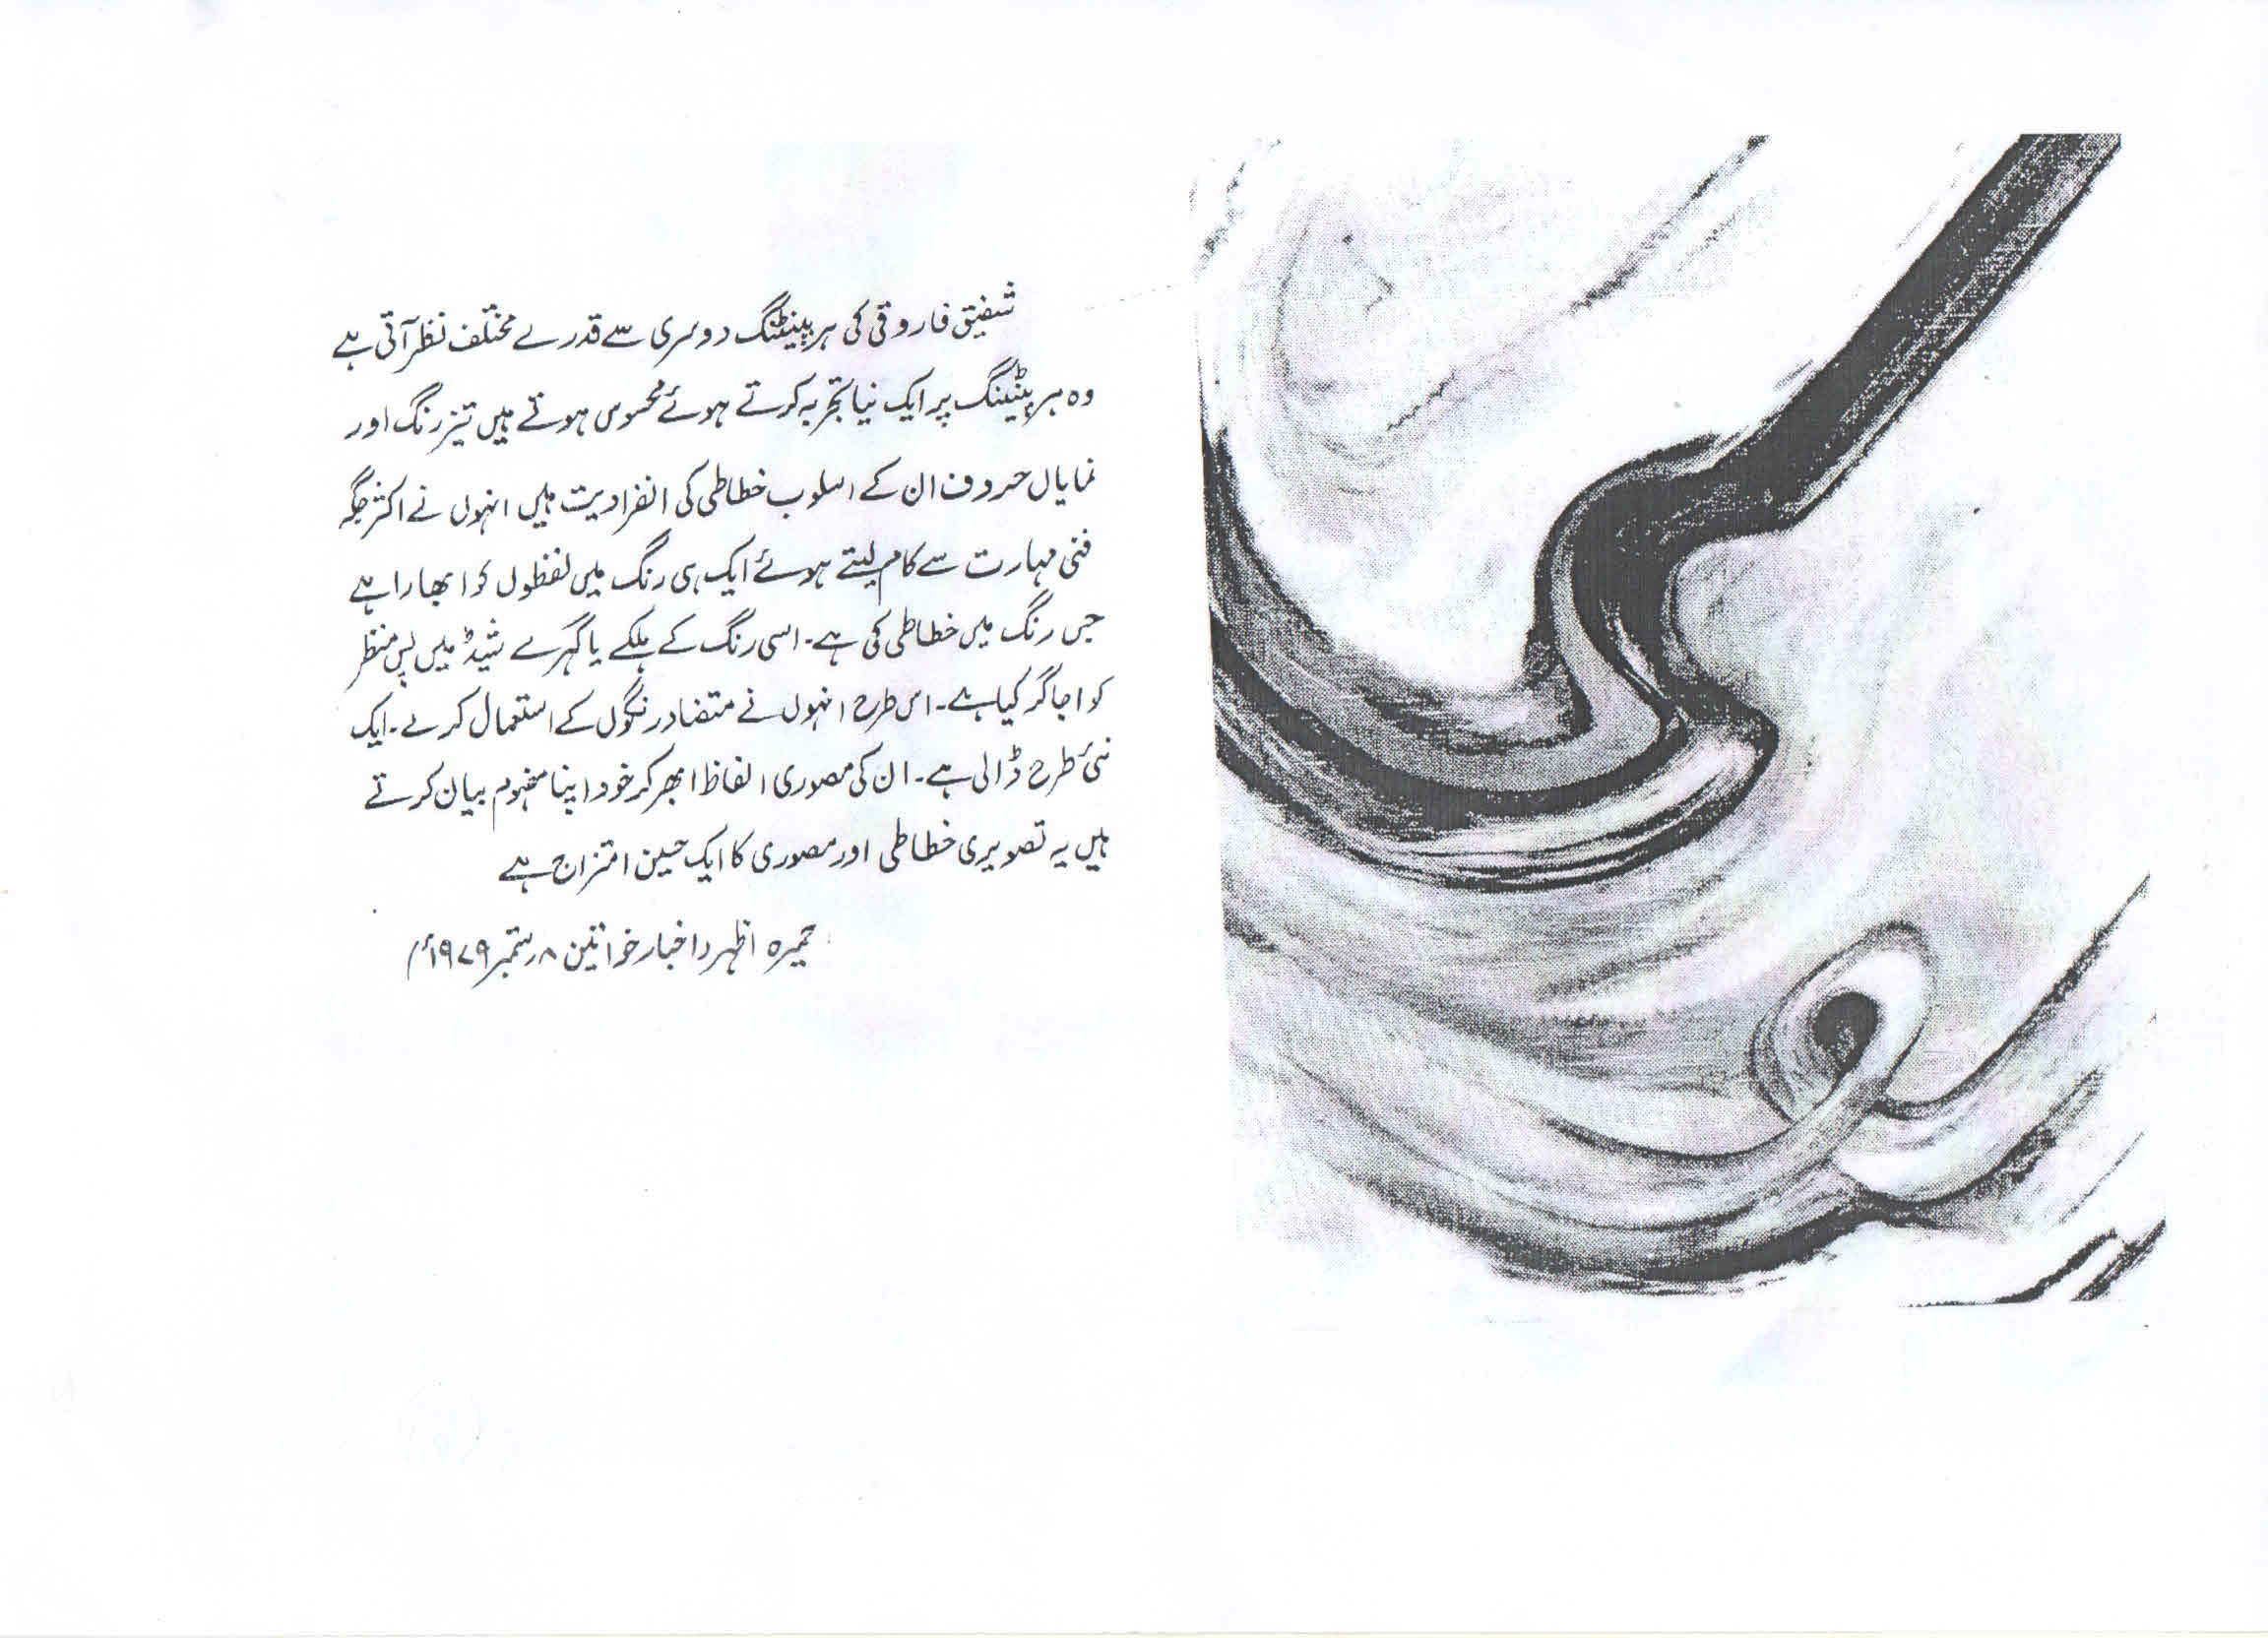 شفیق فاروقی کی ہر پینٹنگ دوسری سے قدرے مختلف نظر آتی ہے
وہ ہر پٹینگ پر ایک نیا تجربہ کرتے ہوئے محسوس ہوتے ہیں تیز رنگ اور
نمایاں حروف ان کے اسلوب خطاطی کی انفرادیت ہیں انہوں نے اکثر جگہ
فنی مہارت سے کام لیتے ہوئے ایک ہی رنگ میں لفظوں کو ابھارا ہے
جس رنگ میں خطاطی کی ہے۔ اسی رنگ کے ہلکے یا گہرے شیڈ میں پس منظر
کو اجاگر کیا ہے۔ اس طرح انہوں نے متضاد رنگوں کے استعمال کرے۔ ایک
نئی طرح ڈالی ہے۔ ان کی مصوری الفاظ ابھر کر خود اپنا مفہوم بیان کرتے
ہیں یہ تصویری خطاطی اور مصوری کا ایک حسین امتزاج ہے
حمیرہ اظہر (اخبار خواتین ۸ ستمبر ۱۹۷۹ء)